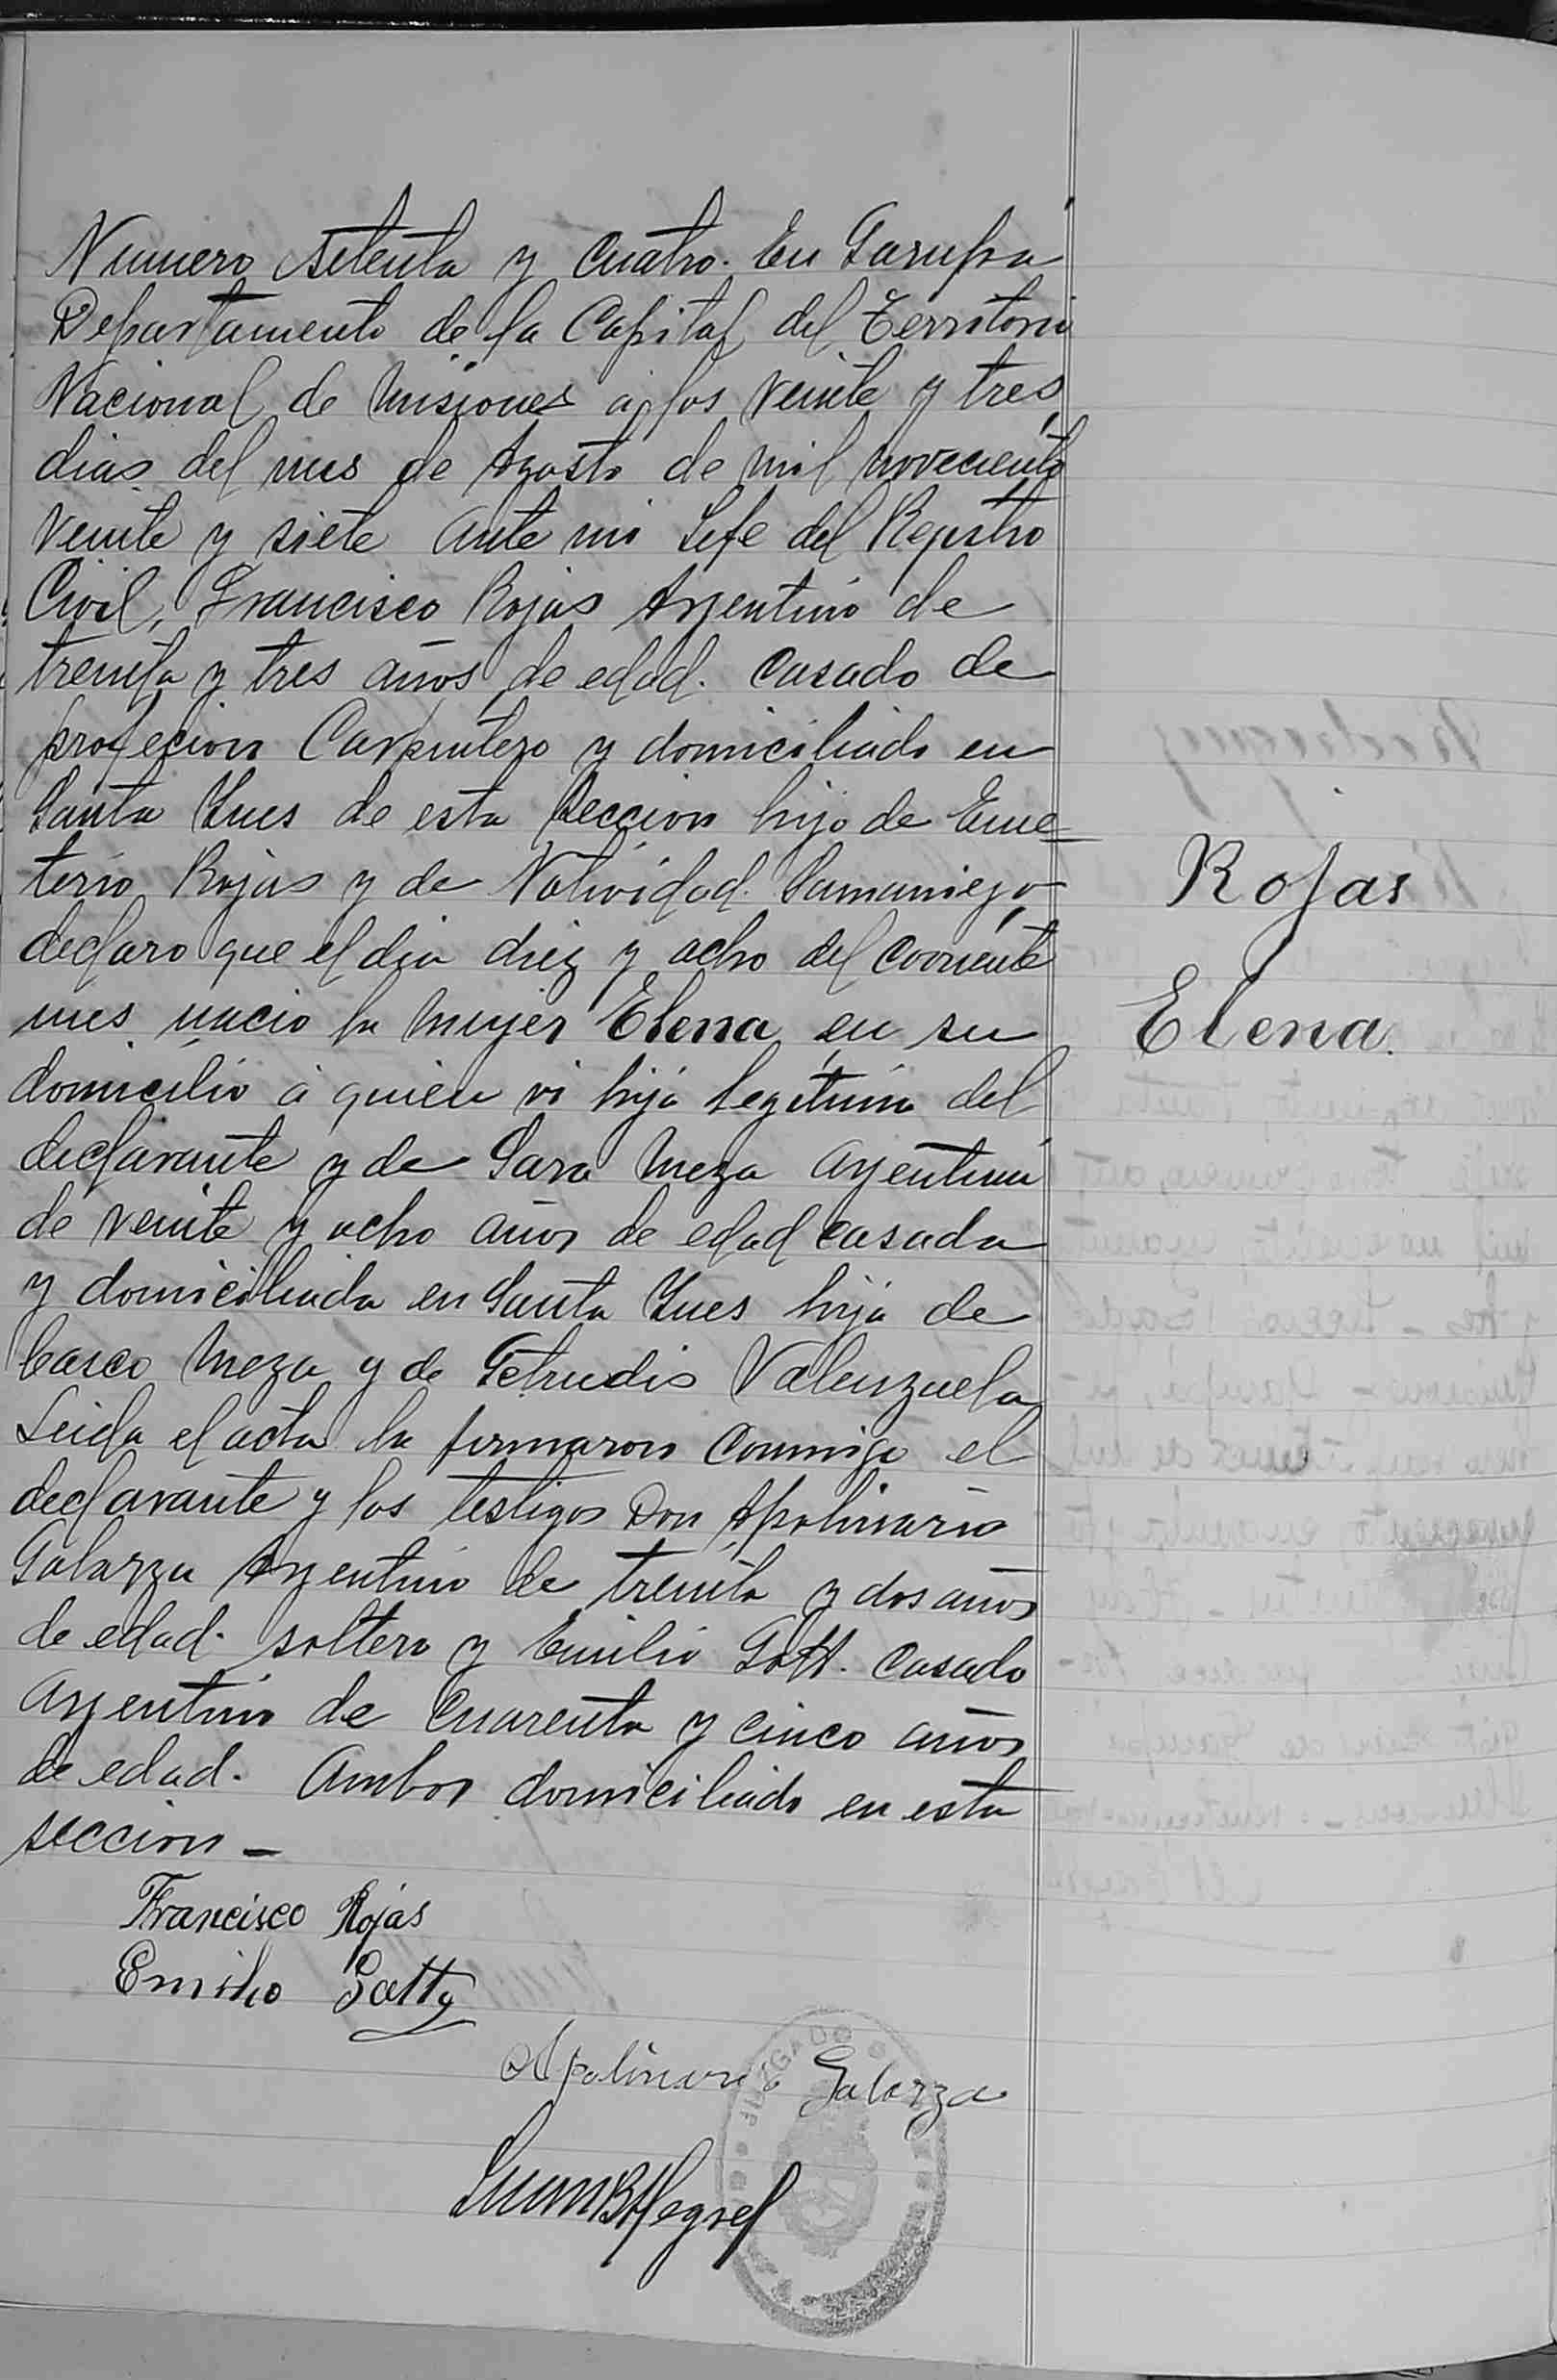 Numero setenta y cuatro. En Garupa
Departamento de la Capital del Territorio
Nacional de Misiones á los veinte y tres
dias del mes de Agosto de mil noveciento
veinte y siete ante mi Jefe del Registro
Civil, Francisco Rojas Argentino de
treinta y tres años de edad. casado de
profecion Carpintero y domiciliado en
Santa Ynes de esta Seccion hijo de Eme-
terio Rojas y de Natividad. Samaniego
declaro que el dia diez y ocho del corriente
mes nacio la mujer Elena en su
domicilio á quien vi hija legitima del
declarante y de Sara Meza argentina
de veinte y ocho años de edad casada
y domiciliada en Santa Ynes hija de
Meza y de Getrudis Valenzuela
Leida el acta la firmaron conmigo el
declarante y los testigos Don Apolinario
Galarza Argentino de treinta y dos años
de edad. soltero y Emilio Gatt. casado
argentino de cuarenta y cinco años
de edad. Ambos domiciliado en esta
seccion -
Rojas
Elena.
Francisco Rojas
Emilio Gatty
Apolinario Galarza
JUZGADO